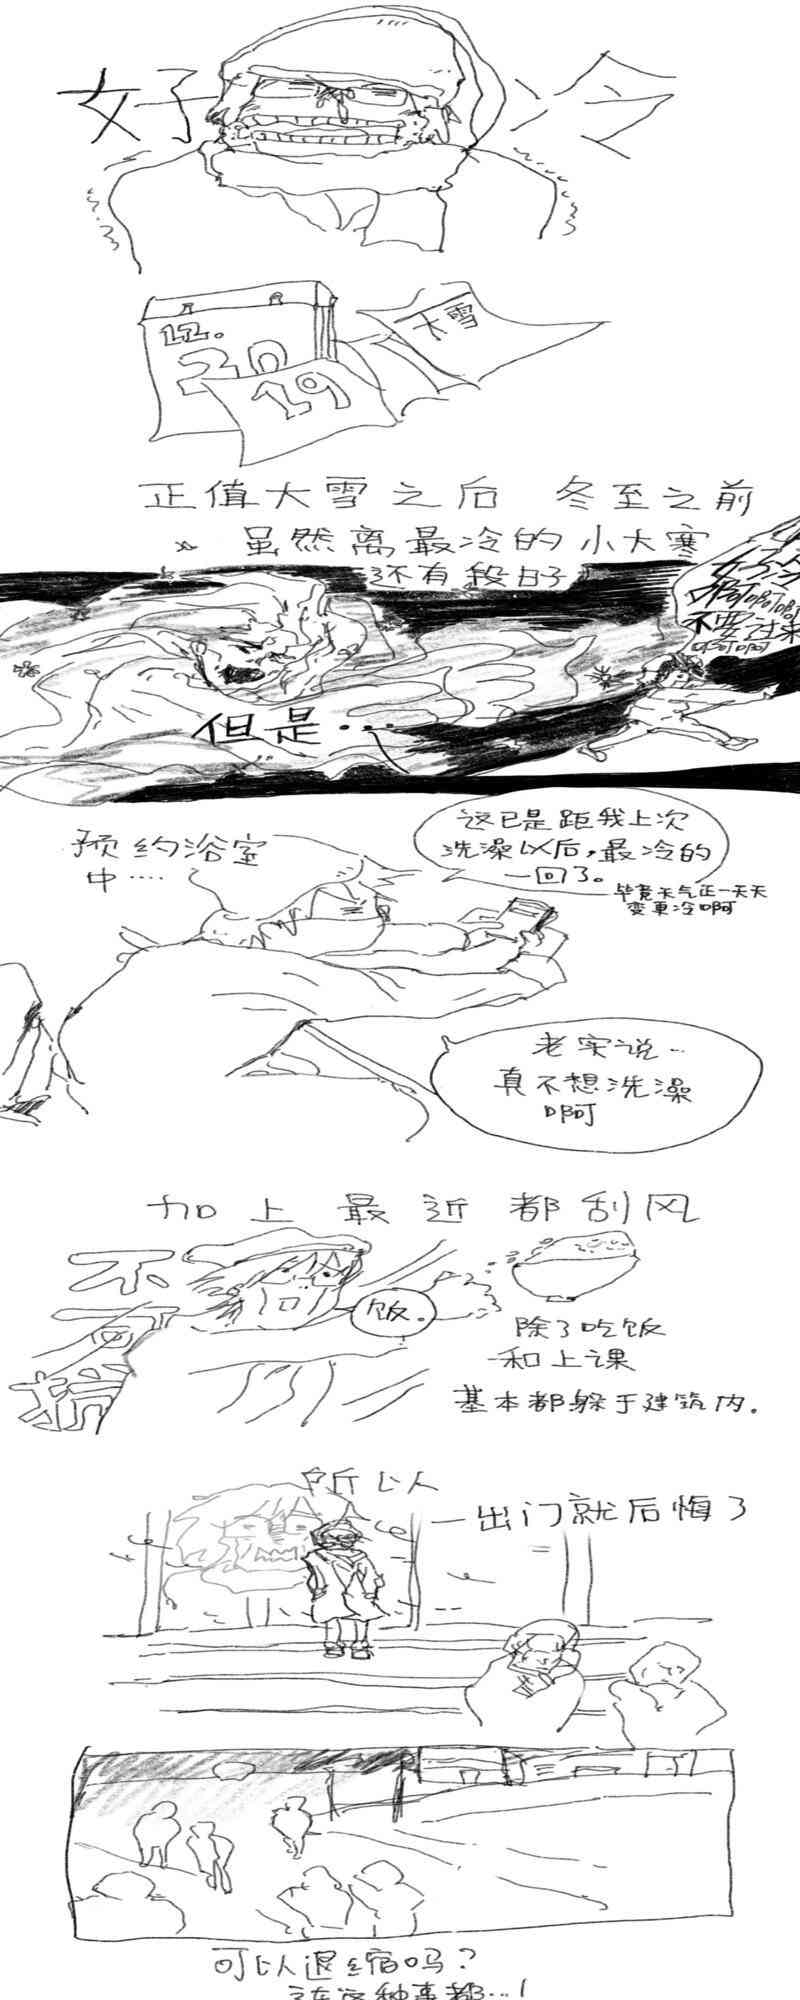 好冷
12.
20
19
大雪
正值大雪之后 冬至之前
虽然离最冷的小大寒
还有段日子
好冷
啊啊啊
不要过来
啊啊啊
但是...
预约浴室
中....
这已是距我上次
洗澡以后,最冷的
一回了。
毕竟天气正一天天
变更冷啊
老实说..
真不想洗澡
啊
加上最近都刮风
不可抗
饭。
除了吃饭
和上课
基本都躲于建筑内.
所以
一出门就后悔了
可以退缩吗?